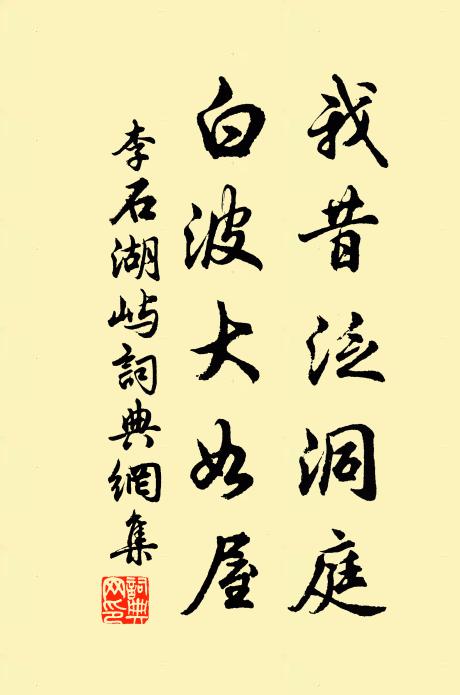 我昔泛洞庭
白波大如屋
李石湖屿詞典網集
詞典網印